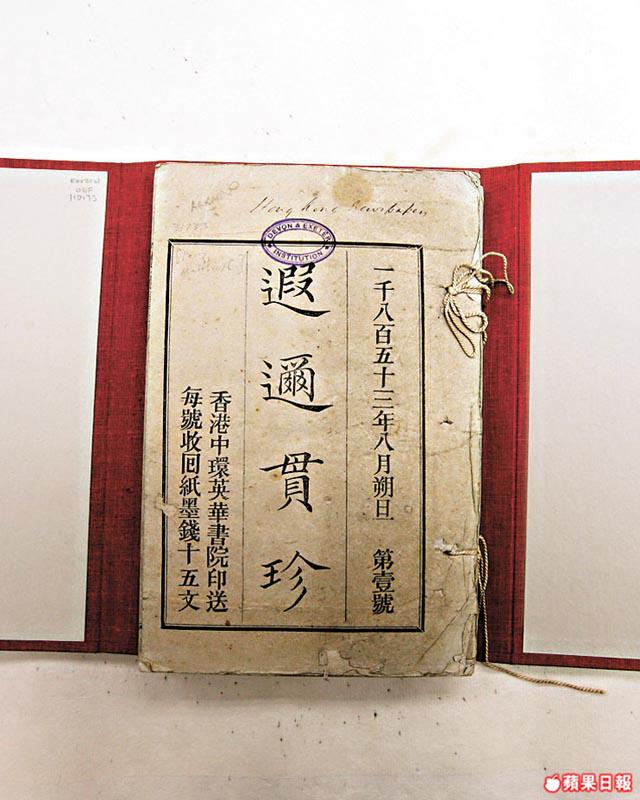 Hong kong newspaper
DEVON & EXETER
INSTITUTION
一千八百五十三年八月朔旦 第壹號
遐邇貫珍
香港中環英華書院印送
每號收回紙墨錢十五文
蘋果日報